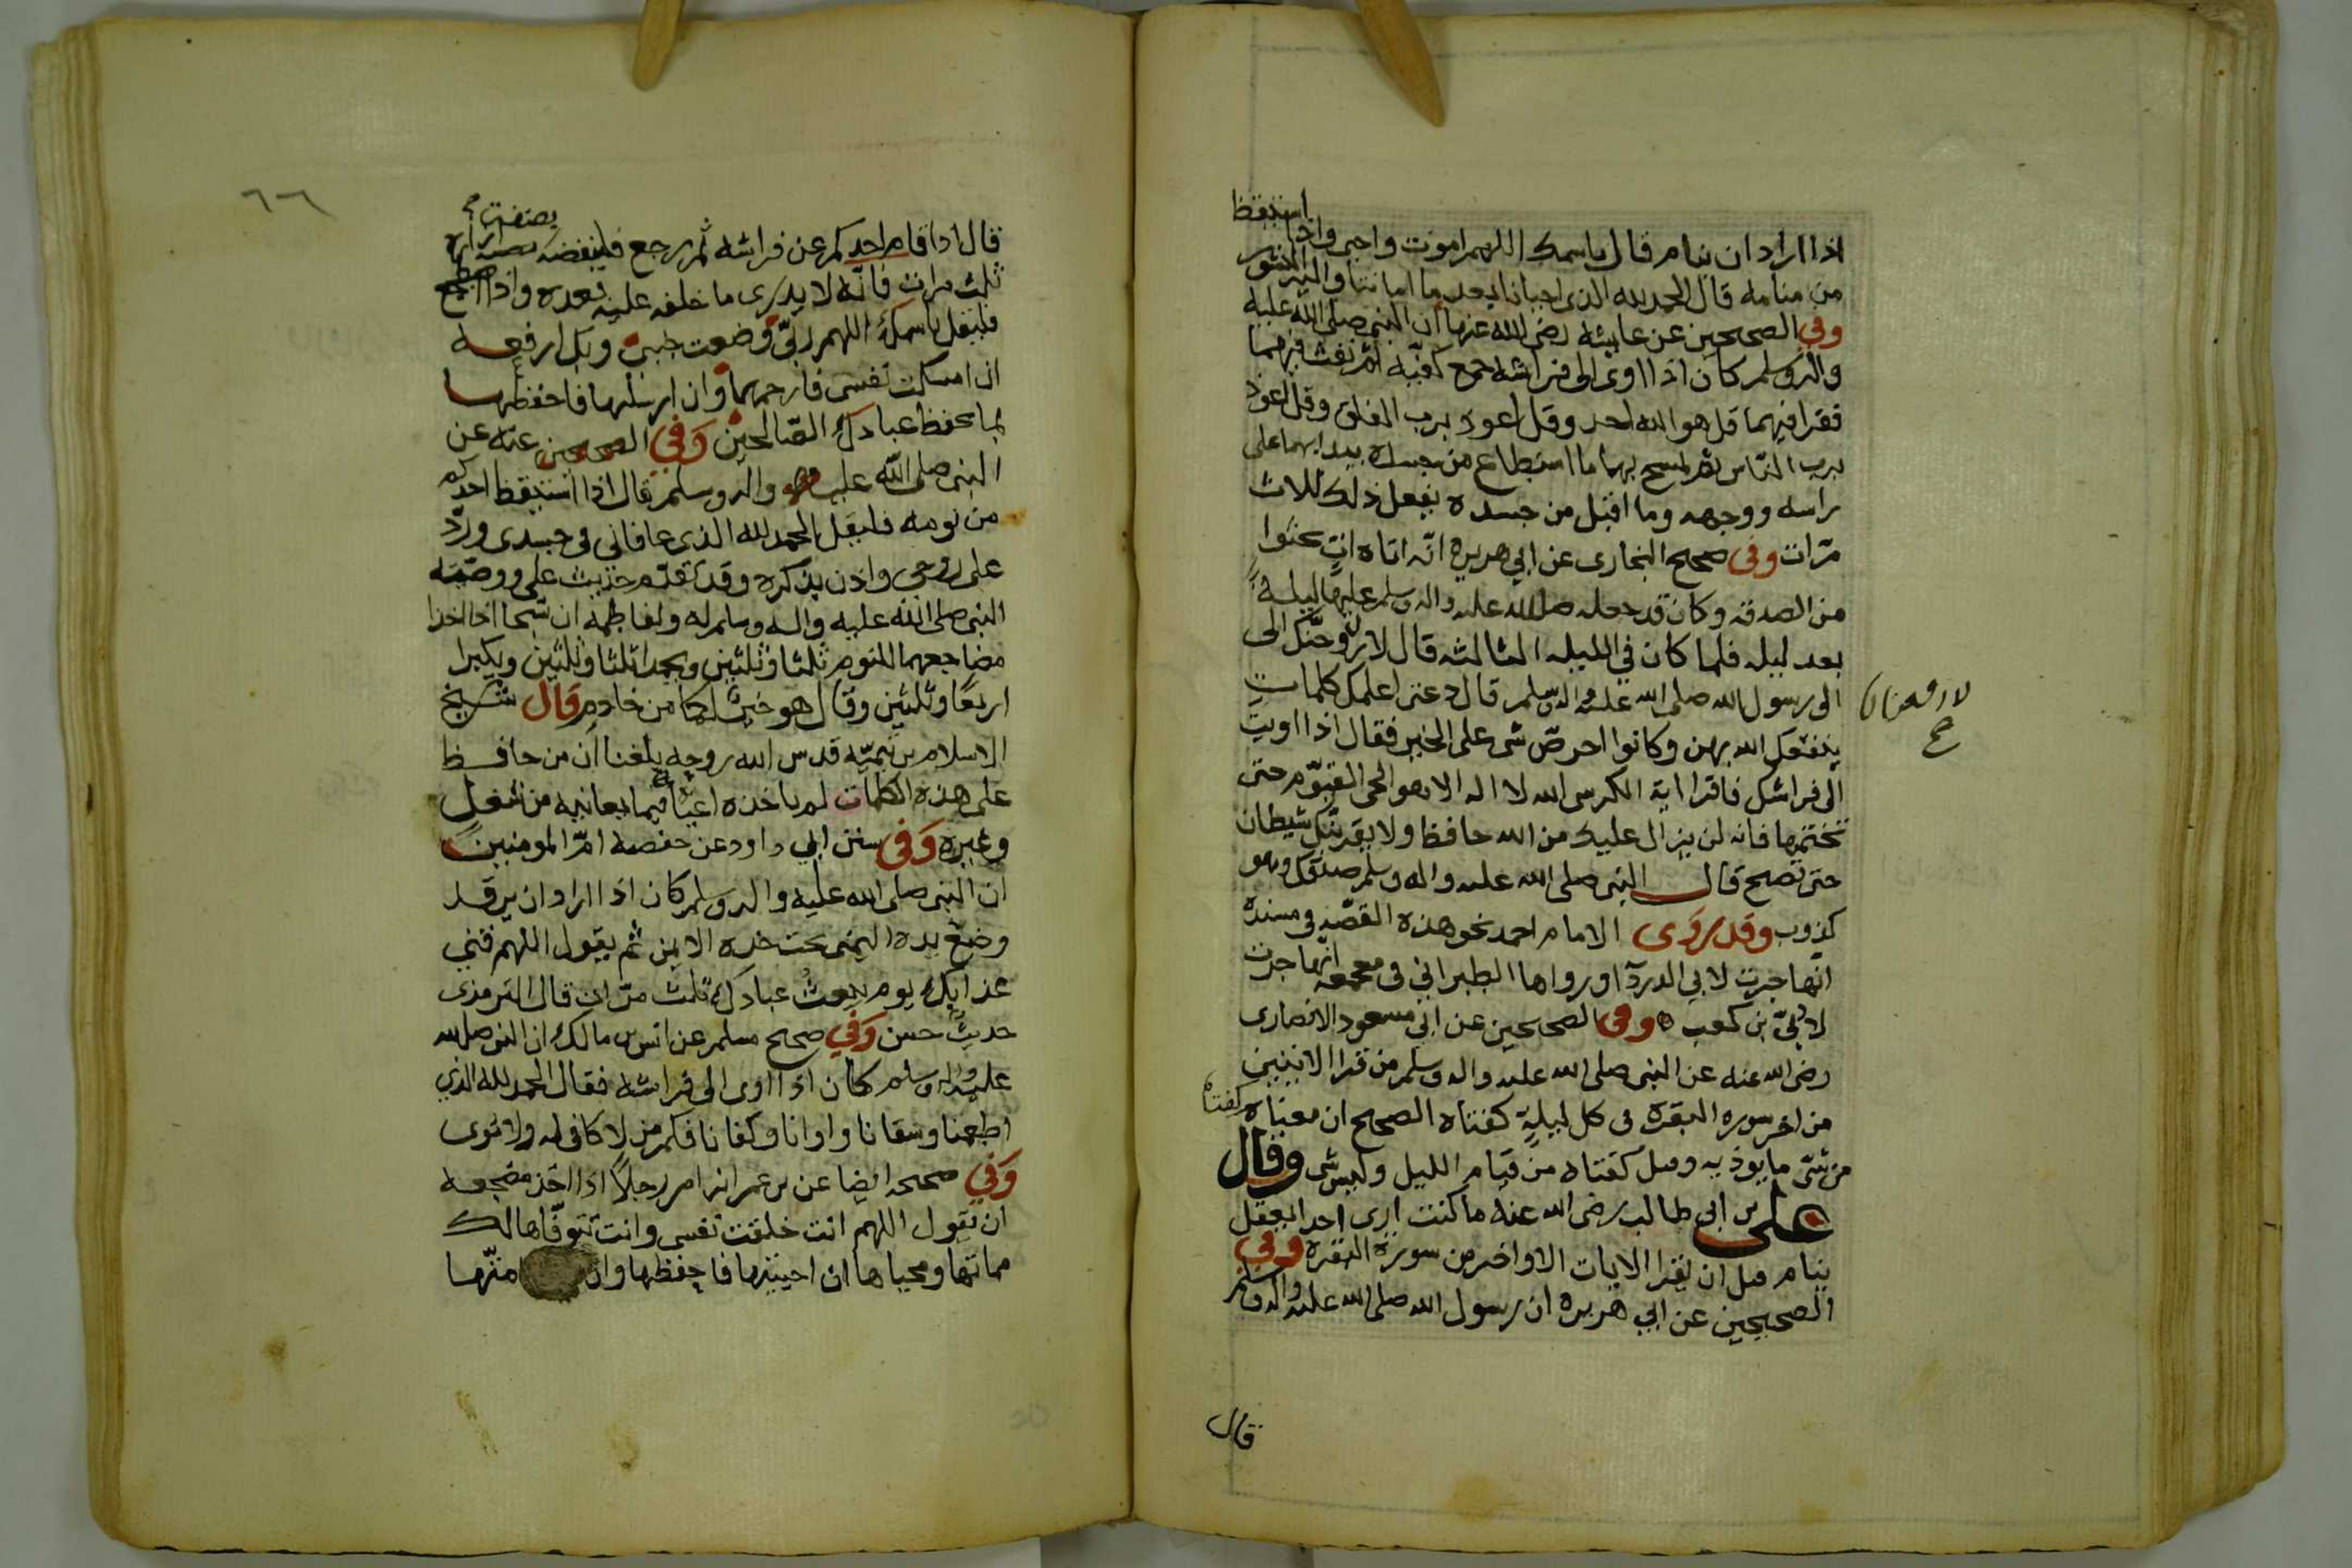 استيقظ
اذا اراد ان ينام قال باسمك اللهم اموت واحيى واذا
من منامه قال الحمد لله الذى احيانا بعد ما اماتنا واليه النشور
وفي الصحيحين عن عايشه رضى الله عنها ان النبى صلى الله عليه
واله وسلم كان اذا اوى الى فراشه جمع كفيه ثم نفث فيهما
فقرا فيهما قل هو الله احد وقل اعوذ برب الفلق وقل اعوذ
برب الناس ثم يمسح بهما ما استطاع من جسده يبدا بهما على
راسه ووجهه وما اقبل من جسده يفعل ذلك ثلاث
مرّات وفى صحيح البخارى عن ابي هريره انّه اتاه اتٍ يحثوا
من الصدقه وكان قد جعله صلى الله عليه واله وسلم عليها ليلةً
بعد ليله فلما كان في الليله الثالثه قال لا الى
الى رسول الله صلى الله عليه واله وسلم قال دعنى اعلمك كلماتٍ
لارفعنك
صح
ينفعك الله بهن وكانوا احرص شى على الخير فقال اذا اويت
الى فراشك فاقرا اية الكرسى الله لا اله الا هو الحى القيّوم حتى
تختمها فانه لن يزال عليك من الله حافظ ولا يقربنّك شيطان
حتى تصبح قال النبى صلى الله عليه واله وسلم صدقك وهو
كذوب وقد روى الامام احمد نحو هذه القصّه فى مسنده
انّها جرت لابي الدردآ ورواها الطبراني فى معجمه انّها جرت
لابيّ بن كعب وفى الصحيحين عن ابي مسعود الانصارى
رضى الله عنه عن النبى صلى الله عليه واله وسلم من قرا الايتين
من اخر سوره البقره فى كل ليلةٍ كفتاه الصحيح ان معناه كفتاه
من شرّ ما يوذيه وقيل كفتاه من قيام الليل وليس شى وقال
على بن ابي طالب رضى الله عنه ما كنت ارى احدا يعقل
ينام قبل ان يقرا الايات الاواخر من سورة البقره وفي
الصحيحين عن ابي هريره ان رسول الله صلى الله عليه واله وسلم
قال
٦٦
قال اذا قام احدكم عن فراشه ثم رجع فلينفضه بصنفة ازاره
ثلث مرات فانّه لا يدرى ما خلفه عليه بعده واذا اضطجع
فليقل باسمك اللهم ربّي وضعت جنبى وبك ارفعه
ان امسكت نفسى فارحمها وان ارسلتها فاحفظها
بما تحفظ عبادك الصّالحين وَفي الصحيحين عنه عن
النبى صلى الله عليه واله وسلم قال اذا استيقظ احدكم
من نومه فليقل الحمد لله الذى عافاني فى جسدى وردّ
على روحي واذن بذكره وقد تقدّم حديث على ووصيّه
النبى صلى الله عليه واله وسلم له ولفاطمه ان يسبحا اذا اخذا
مضاجعهما للنوم ثلثا وثلثين ويحمدا ثلثا وثلثين ويكبرا
اربعًا وثلثين وقال هو خيرٌ لكما من خادمٍ قال شيخ
الاسلام بن تيميّه قدس الله روحه بلغنا ان من حافظ
على هذه الكلمات لم ياخذه اعيآ فيما يعانيه من شغلٍ
وغيره وَفى سنن ابي داود عن حفصة امّ المومنين
ان النبى صلى الله عليه واله وسلم كان اذا اراد ان يرقد
وضع يده اليمنى تحت خده الايمن ثم يقول اللهم قني
عذابك يوم تبعث عبادك ثلث مرّاتٍ قال الترمذى
حديثٌ حسن وَفي صحيح مسلم عن انس بن مالك ان النبى صلى الله
عليه واله وسلم كان اذا اوى الى فراشه فقال الحمد لله الذي
اطعمنا وسقانا واوانا وكفانا فكم من لا كافى له ولا مؤى
وَفي صحيحه ايضا عن بن عمر انه امر رجلاً اذا اخذ مضجعه
ان يقول اللهم انت خلقت نفسى وانت تتوفّاها لك
مماتها ومحياها ان احييتها فاحفظها وان امتّها